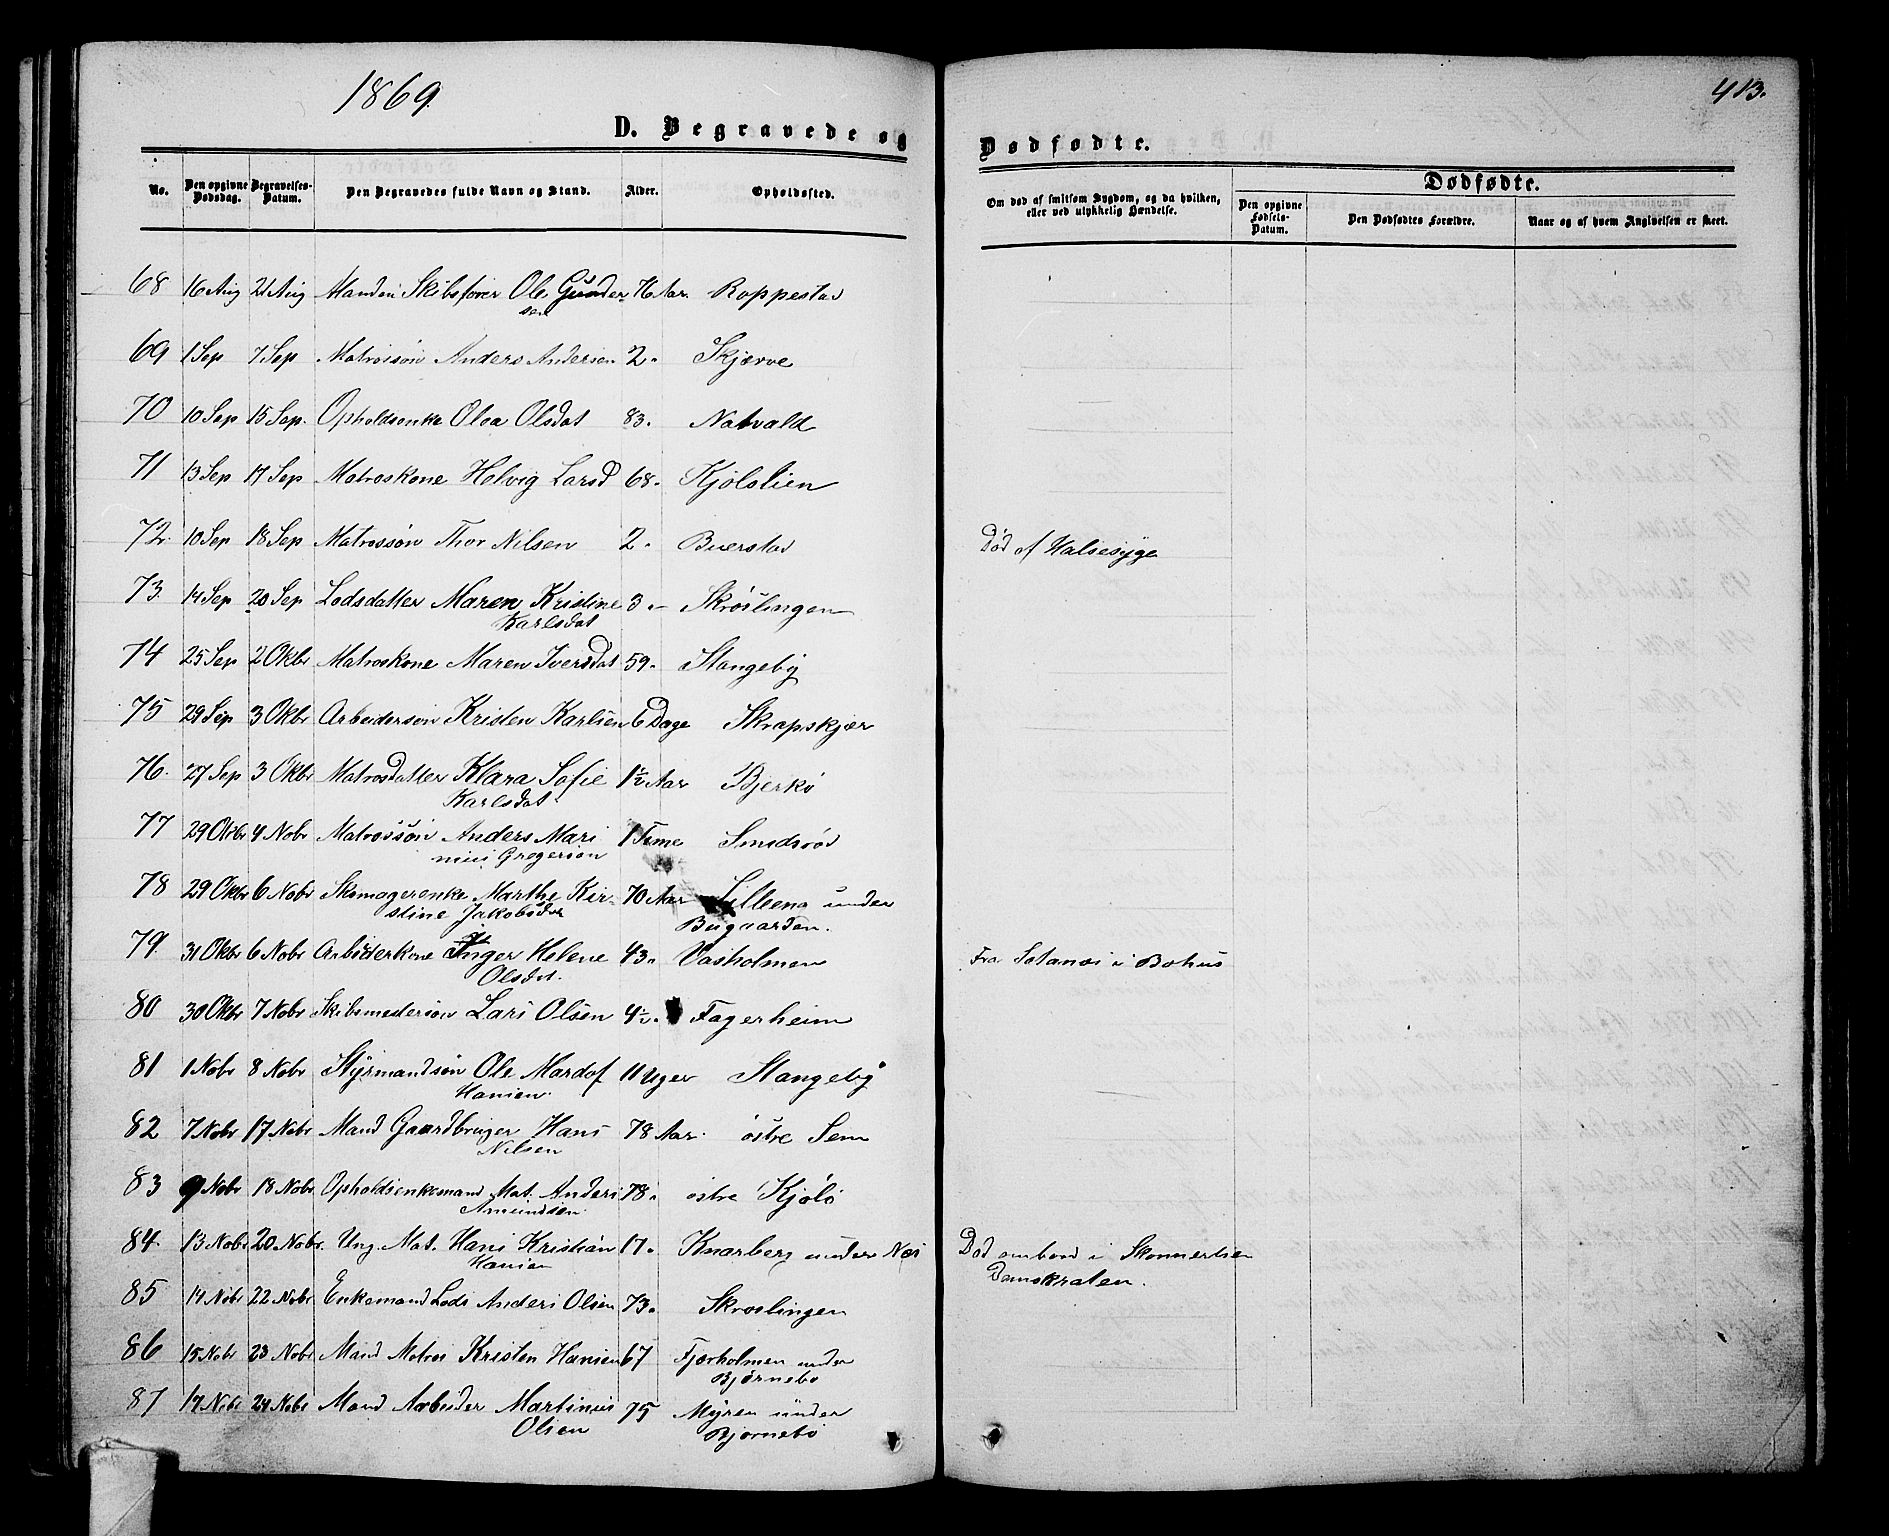 1869.
413.
D. Begravede og Dødfødte.
No. Den opgivne Dødsdag. Begravelses-Datum. Den Begravedes fulde Navn og Stand. Alder. Opholdssted.
Om død af smitsom Sygdom, og da hvilken, eller ved ulykkelig Hændelse.
Dødfødte.
Den opgivne Fødsels-Datum. Den Dødfødtes Forældre. Naar og af hvem Angivelsen er skeet.
68 16 Aug 21 Aug Manden Skibsfører Ole Gunder- 76 Aar. Roppestad
sen
69 1 Sep 7 Sep Matrossøn Anders Andersen 2. Skjerve
70 10 Sep 15 Sep. Opholdsenke Olea Olsdat 83. Natvald
71 13 Sep 17 Sep Matroskone Helvig Larsd 68. Kjølslien
72. 10 Sep 18 Sep Matrossøn Thor Nilsen 2. Buerstad Død af Halsesyge
73. 14 Sep 20 Sep Lodsdatter Maren Kristine 3 - Skrøslingen
Karlsdat
74 25 Sep 2 Oktbr Matroskone Maren Iversdat 59. Stangeby
75 29 Sep 3 Oktbr Arbeidersøn Kristen Karlsen 6 Dage Skrapskjær
76. 27 Sep 3 Oktbr Matrosdatter Klara Sofie 1½ Aar Bjerkø
Karlsdat
77 29 Oktbr 4 Nobr Matrossøn Anders Mari 1 Time Smidsrød
nius Gregersøn
78 29 Oktbr 6 Nobr Skomagerenke Marthe Kir- 70 Aar Lilleeng under
stine Jakobsdat Bugaarden.
79. 31 Oktbr 6 Nobr Arbeiderkone Inger Helene 43. Vasholmen Fra Satanæs i Bohus
Olsdat.
80 30 Oktbr 7 Nobr Skibsmestersøn Lars Olsen 4½. Fagerheim
81 1 Nobr 8 Nobr Styrmandsøn Ole Mardof 11 Uger Stangeby
Hansen.
82 7 Nobr 17 Nobr Mand Gaardbruger Hans 78 Aar. østre Sem
Nilsen
83 9 Nobr 18 Nobr Opholdsenkemand Mat. Anders 78. østre Kjølø
Amundsen.
84. 13 Nobr 20 Nobr. Ung. Mat. Hans Kristian 17. Knarberg under Nes Død ombord i Skonnerten
Hansen Demokraten.
85 14 Nobr 22 Nobr Enkemand Lods Anders Olsen 73. Skroslingen
86 15 Nobr 23 Nobr Mand Matros Kristen Hansen 67 Fjærholmen under
Bjørnebo
87 17 Nobr 24 Nobr Mand Arbeider Martinius 75 Myren under
Olsen Bjørnebo